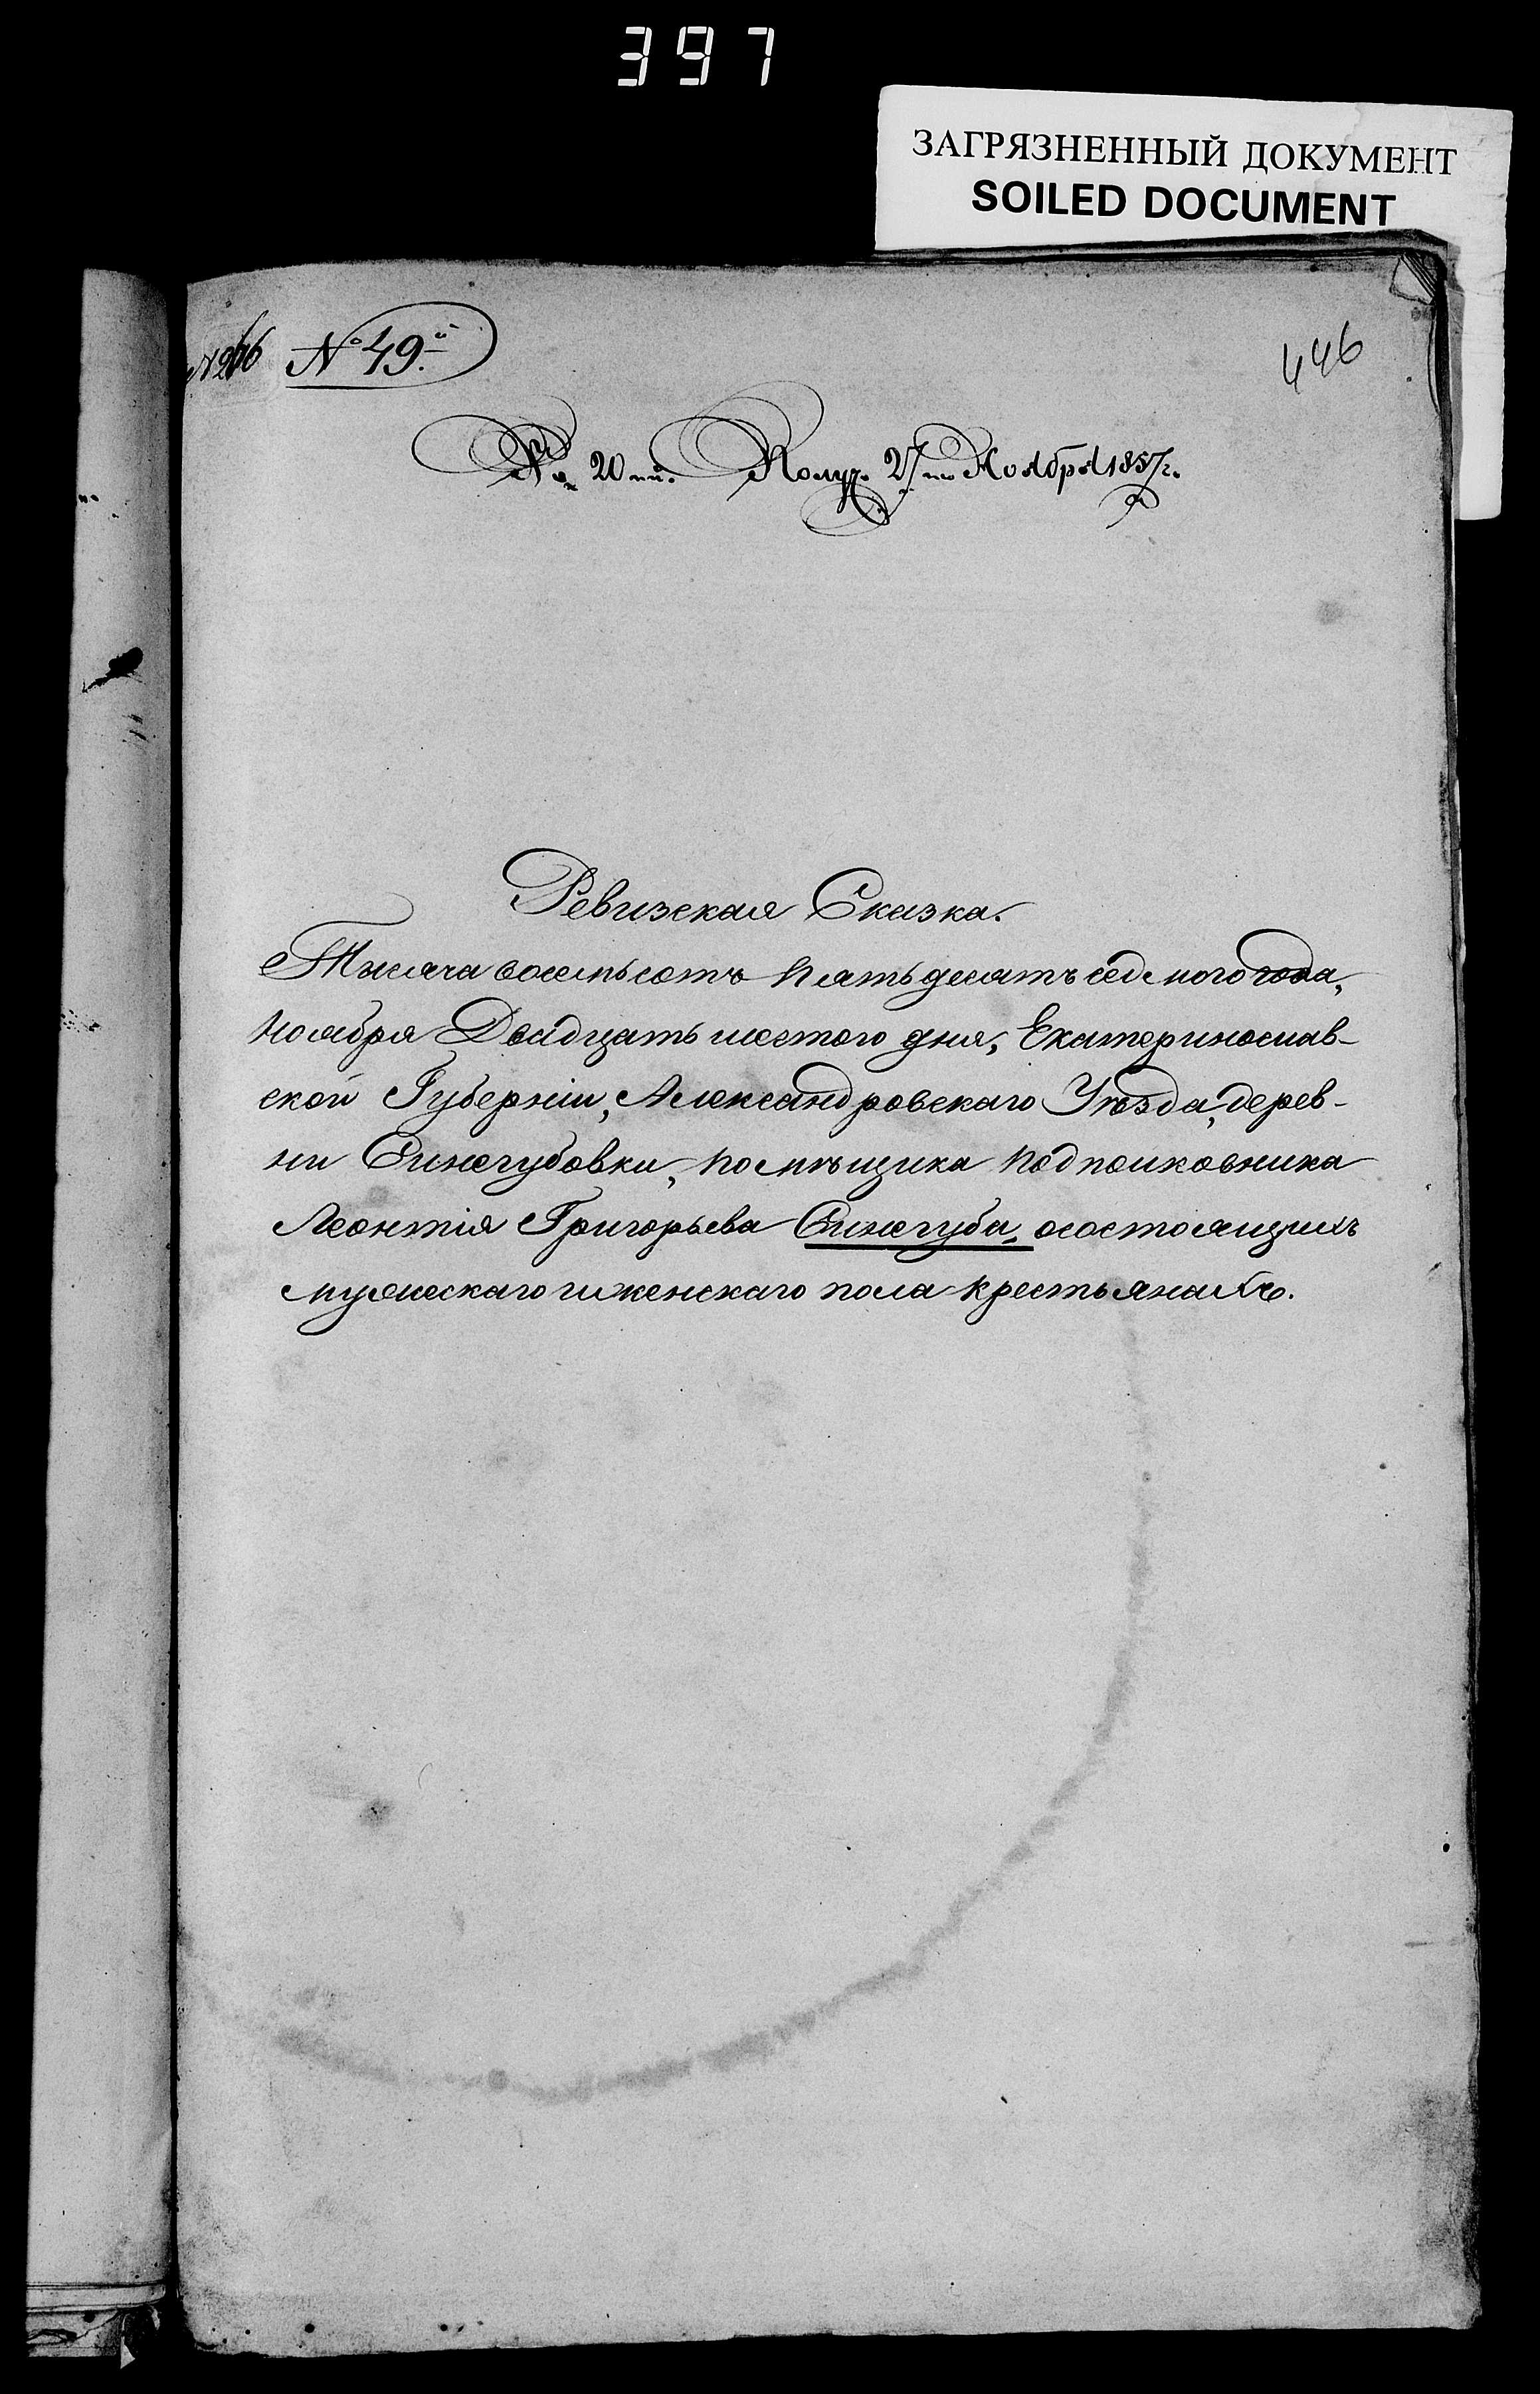 397
ЗАГРЯЗНЕННЫЙ ДОКУМЕНТ
SOILED DOCUMENT
№ 49.й
446
№ 20й. Получ. 27го Ноября 1857г.
Ревизская Сказка.
Тысяча восемьсотъ пятьдесятъ седьмого года,
Ноября Двадцать шестого дня, Екатеринослав-
ской Губерніи, Александровскаго Уѣзда, дерев-
ни Синегубовки, помѣщика подполковника
Леонтія Григорьева Синегуба, о состоящихъ
мужескаго и женскаго пола крестьянахъ.